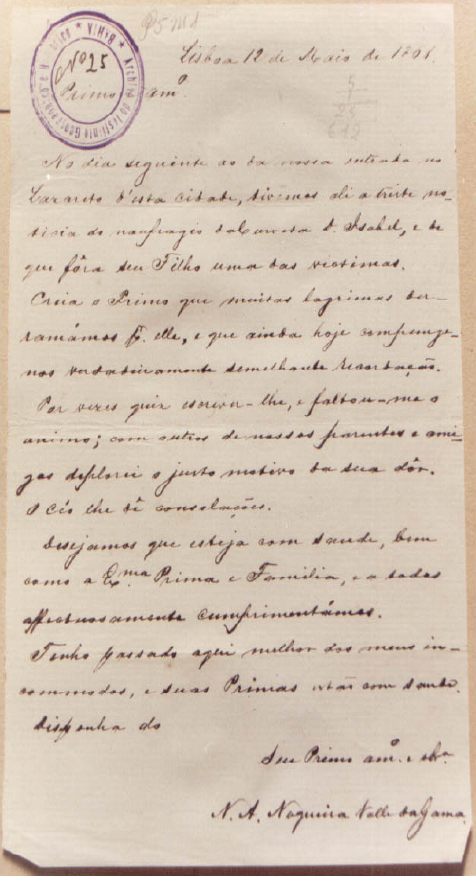 P5M1
Lisboa 12 de Maio de 1891.
Archivo do Instituto Geographico e Historico BAHIA
Nº 25
Primo e amº.
No dia seguinte ao da nossa entrada no
Lazareto d'esta cidade, tivemos ali a triste no-
ticia do naufragio da Corveta D. Isabel, e de
que fôra seu Filho uma das victimas.
Creia o Primo que muitas lagrimas der-
ramámos p. elle, e que ainda hoje compunge-
nos verdadeiramente semelhante recordação.
Por vezes quiz escrever-lhe, e faltou-me o
animo; com outros de nossos parentes e ami-
gos deplorei o justo motivo da sua dôr.
O Céo lhe dê consolações.
Desejamos que esteja com saude, bem
como a Exma Prima e Familia, e a todos
affectuosamente cumprimentámos.
Tenho passado aqui melhor dos meus in-
commodos, e suas Primas estão com saude.
Disponha do
Seu Primo amº. e obrº.
N. A. Nogueira Valle da Gama.